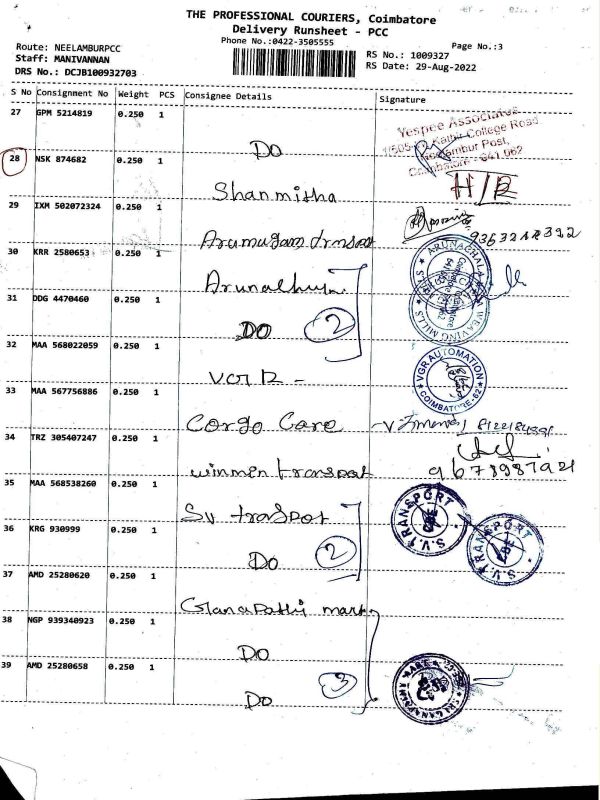 THE PROFESSIONAL COURIERS, Coimbatore
Delivery Runsheet - PCC
Phone No.:0422-3505555
Page No.:3
Route: NEELAMBURPCC
Staff: MANIVANNAN
DRS No.: DCJB100932703
RS No.: 1009327
RS Date: 29-Aug-2022
S No Consignment No Weight PCS Consignee Details Signature
27 GPM 5214819 0.250 1 DO
Yespee Associates
Kathir College Road
Neelambur Post,
Coimbatore - 641 062
28 NSK 874682 0.250 1 Shanmitha
29 IXM 502072324 0.250 1 Arumugam
30 KRR 2580653 0.250 1
ARUNACHALA WEAVING MILLS
31 DDG 4470460 0.250 1 DO 2
32 MAA 568022059 0.250 1 VGR -
VGR AUTOMATION
COIMBATORE-62
33 MAA 567756886 0.250 1 Corgo Care
34 TRZ 305407247 0.250 1 winmen transpot
9678987921
35 MAA 568538260 0.250 1 SV traspot
S.V. TRANSPORT
CBE
S.V. TRANSPORT
CBE
36 KRG 930999 0.250 1 DO 2
37 AMD 25280620 0.250 1 Ganapathy mart
38 NGP 939340923 0.250 1 DO
39 AMD 25280658 0.250 1 DO 3
SRI GANAPATHY MART